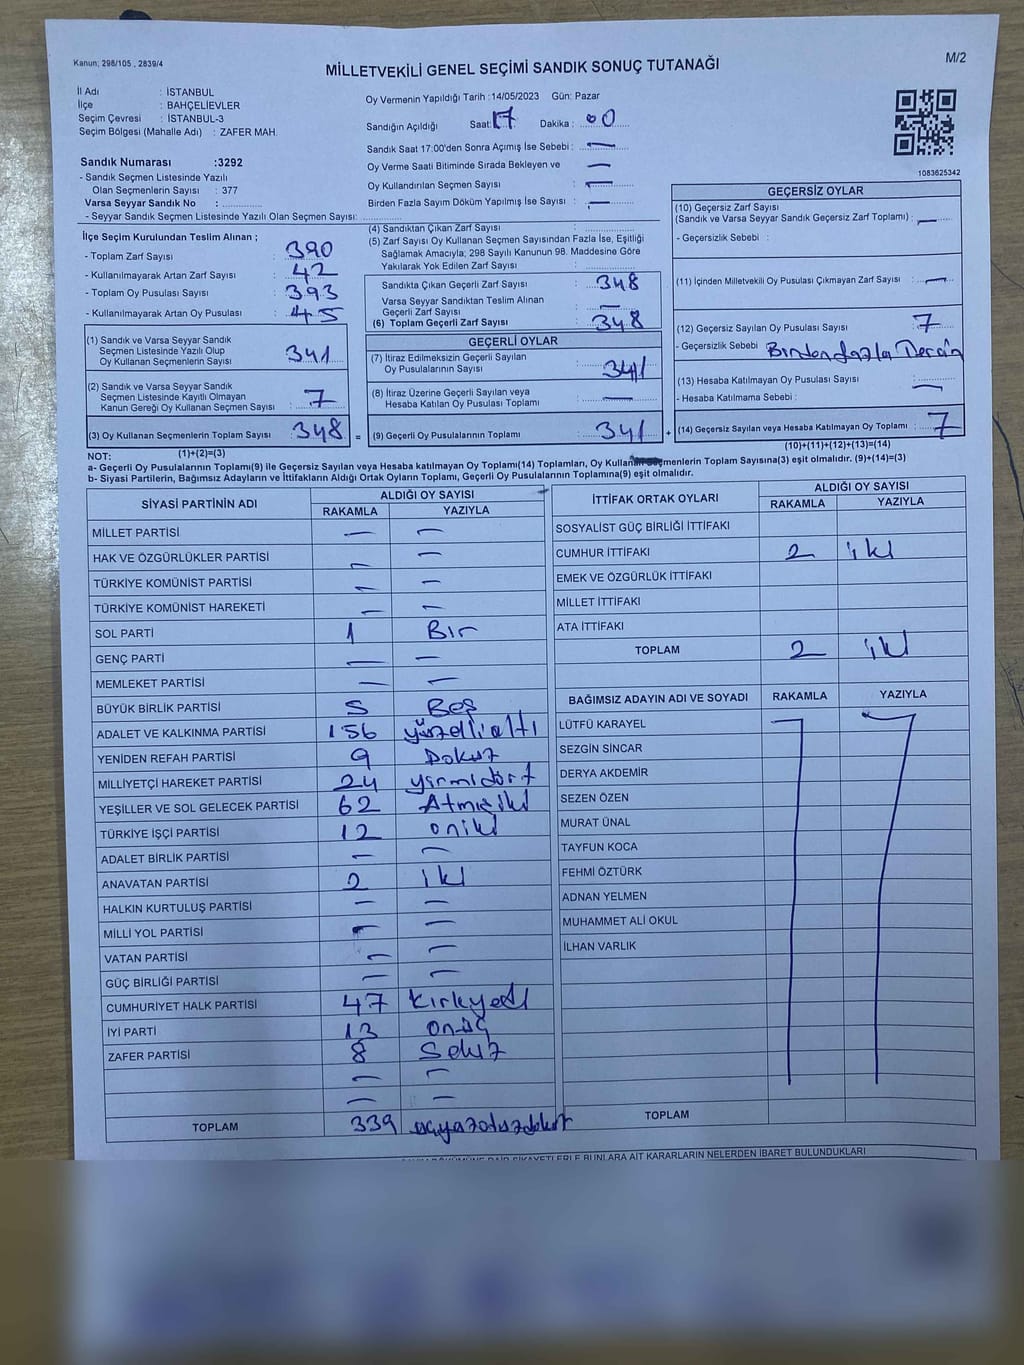 Kanun; 298/105 , 2839/4
M/2
MİLLETVEKİLİ GENEL SEÇİMİ SANDIK SONUÇ TUTANAĞI
İl Adı : İSTANBUL
İlçe : BAHÇELİEVLER
Seçim Çevresi : İSTANBUL-3
Seçim Bölgesi (Mahalle Adı) : ZAFER MAH.
Sandık Numarası :3292
- Sandık Seçmen Listesinde Yazılı
Olan Seçmenlerin Sayısı : 377
Varsa Seyyar Sandık No :
- Seyyar Sandık Seçmen Listesinde Yazılı Olan Seçmen Sayısı:
Oy Vermenin Yapıldığı Tarih :14/05/2023 Gün: Pazar
Sandığın Açıldığı Saat: 17 Dakika : 00
Sandık Saat 17:00'den Sonra Açımış İse Sebebi : —
Oy Verme Saati Bitiminde Sırada Bekleyen ve —
Oy Kullandırılan Seçmen Sayısı : —
Birden Fazla Sayım Döküm Yapılmış İse Sayısı : —
1083625342
İlçe Seçim Kurulundan Teslim Alınan ;
- Toplam Zarf Sayısı : 390
- Kullanılmayarak Artan Zarf Sayısı : 42
- Toplam Oy Pusulası Sayısı : 393
- Kullanılmayarak Artan Oy Pusulası : 45
(1) Sandık ve Varsa Seyyar Sandık
Seçmen Listesinde Yazılı Olup
Oy Kullanan Seçmenlerin Sayısı : 341
(2) Sandık ve Varsa Seyyar Sandık
Seçmen Listesinde Kayıtlı Olmayan
Kanun Gereği Oy Kullanan Seçmen Sayısı : 7
(3) Oy Kullanan Seçmenlerin Toplam Sayısı : 348
(4) Sandıktan Çıkan Zarf Sayısı :
(5) Zarf Sayısı Oy Kullanan Seçmen Sayısından Fazla İse, Eşitliği
Sağlamak Amacıyla; 298 Sayılı Kanunun 98. Maddesine Göre
Yakılarak Yok Edilen Zarf Sayısı :
Sandıkta Çıkan Geçerli Zarf Sayısı : 348
Varsa Seyyar Sandıktan Teslim Alınan
Geçerli Zarf Sayısı : —
(6) Toplam Geçerli Zarf Sayısı : 348
GEÇERLİ OYLAR
(7) İtiraz Edilmeksizin Geçerli Sayılan
Oy Pusulalarının Sayısı : 341
(8) İtiraz Üzerine Geçerli Sayılan veya
Hesaba Katılan Oy Pusulası Toplamı : —
= (9) Geçerli Oy Pusulalarının Toplamı : 341 +
GEÇERSİZ OYLAR
(10) Geçersiz Zarf Sayısı
(Sandık ve Varsa Seyyar Sandık Geçersiz Zarf Toplamı) : —
- Geçersizlik Sebebi :
(11) İçinden Milletvekili Oy Pusulası Çıkmayan Zarf Sayısı : —
(12) Geçersiz Sayılan Oy Pusulası Sayısı : 7
- Geçersizlik Sebebi : Birden fazla
(13) Hesaba Katılmayan Oy Pusulası Sayısı : —
- Hesaba Katılmama Sebebi :
(14) Geçersiz Sayılan veya Hesaba Katılmayan Oy Toplamı : 7
NOT: (1)+(2)=(3)
(10)+(11)+(12)+(13)=(14)
a- Geçerli Oy Pusulalarının Toplamı(9) ile Geçersiz Sayılan veya Hesaba katılmayan Oy Toplamı(14) Toplamları, Oy Kullanan Seçmenlerin Toplam Sayısına(3) eşit olmalıdır. (9)+(14)=(3)
b- Siyasi Partilerin, Bağımsız Adayların ve İttifakların Aldığı Ortak Oyların Toplamı, Geçerli Oy Pusulalarının Toplamına(9) eşit olmalıdır.
SİYASİ PARTİNİN ADI ALDIĞI OY SAYISI
RAKAMLA YAZIYLA
MİLLET PARTİSİ — —
HAK VE ÖZGÜRLÜKLER PARTİSİ — —
TÜRKİYE KOMÜNİST PARTİSİ — —
TÜRKİYE KOMÜNİST HAREKETİ — —
SOL PARTİ 1 Bir
GENÇ PARTİ — —
MEMLEKET PARTİSİ — —
BÜYÜK BİRLİK PARTİSİ 5 Beş
ADALET VE KALKINMA PARTİSİ 156 yüzellialtı
YENİDEN REFAH PARTİSİ 9 Dokuz
MİLLİYETÇİ HAREKET PARTİSİ 24 yirmidört
YEŞİLLER VE SOL GELECEK PARTİSİ 62 Atmışiki
TÜRKİYE İŞÇİ PARTİSİ 12 oniki
ADALET BİRLİK PARTİSİ — —
ANAVATAN PARTİSİ 2 iki
HALKIN KURTULUŞ PARTİSİ — —
MİLLİ YOL PARTİSİ — —
VATAN PARTİSİ — —
GÜÇ BİRLİĞİ PARTİSİ — —
CUMHURİYET HALK PARTİSİ 47 kırkyedi
İYİ PARTİ 13 onüç
ZAFER PARTİSİ 8 Sekiz
— —
— —
TOPLAM 339 üçyüzotuzdokuz
İTTİFAK ORTAK OYLARI ALDIĞI OY SAYISI
RAKAMLA YAZIYLA
SOSYALİST GÜÇ BİRLİĞİ İTTİFAKI
CUMHUR İTTİFAKI 2 iki
EMEK VE ÖZGÜRLÜK İTTİFAKI
MİLLET İTTİFAKI
ATA İTTİFAKI
TOPLAM 2 iki
BAĞIMSIZ ADAYIN ADI VE SOYADI RAKAMLA YAZIYLA
LÜTFÜ KARAYEL
SEZGİN SİNCAR
DERYA AKDEMİR
SEZEN ÖZEN
MURAT ÜNAL
TAYFUN KOCA
FEHMİ ÖZTÜRK
ADNAN YELMEN
MUHAMMET ALİ OKUL
İLHAN VARLIK
TOPLAM
SAYIM DÖKÜMÜNE DAİR ŞİKAYETLERLE BUNLARA AİT KARARLARIN NELERDEN İBARET BULUNDUKLARI